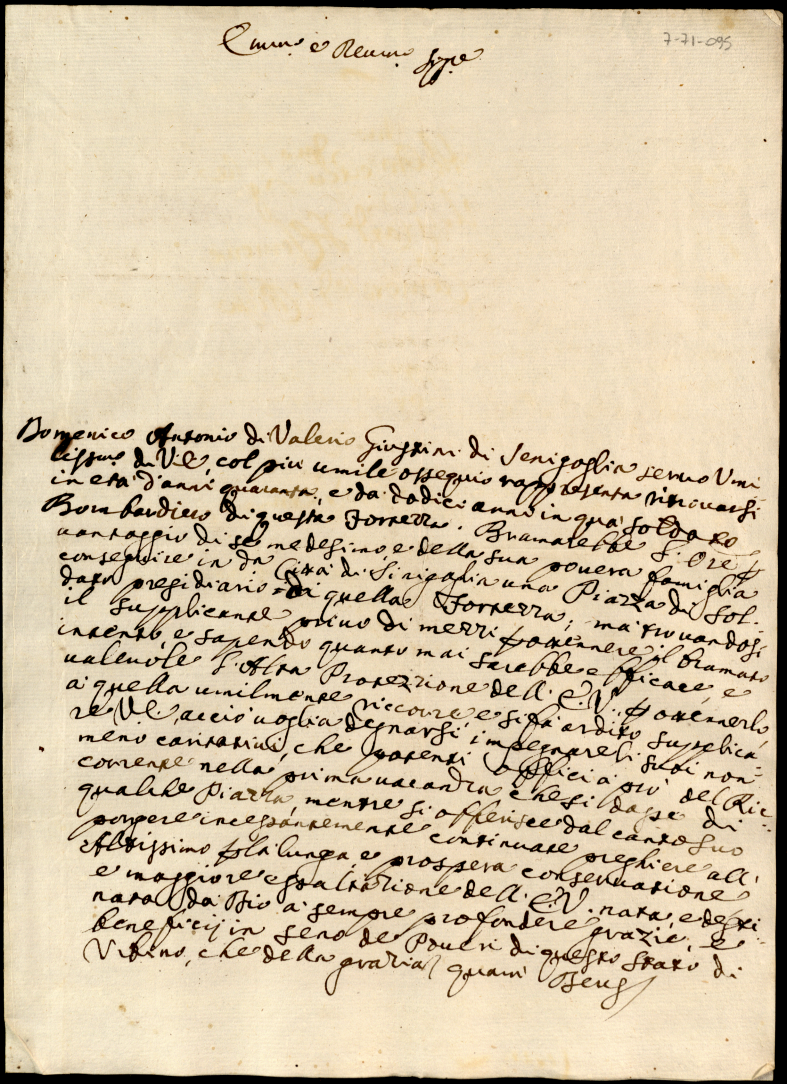 7-71-095
Emmo e Revmo Sigre
Domenico Antonio di Valerio Giustini di Senigaglia servo Umi-
lissmo di V.E., col più umile ossequio rappresenta ritrovarsi
in età d'anni quaranta, e da dodici anni in quà soldato
Bombardiero di questa Fortezza. Bramarebbe l'Ore p
vantaggio di se medesimo, e della sua povera famiglia
conseguire in da Città di Sinigaglia una Piazza di Sol-
dato presidiario di quella Fortezza; ma trovandosi
il supplicante privo di mezzi p ottennere il bramato
intento, e sapendo quanto mai sarebbe efficace, e
valevole l'Alta Protezzione dell' E.V. p ottennerlo,
a quella umilmente riccorre, e si fà ardito supplica-
re V.E., acciò voglia degnarsi impegnare li suoi non
meno caritativi, che potenti officj a prò del Ric-
corrente nella prima vacanza che si dasse di
qualche Piazza, mentre si offerisce dal canto suo
porgere incessantemente continuate preghiere all'
Altissimo p la lunga, e prospera conservazione
e maggiore esaltazione dell' E.V. nata, e desti-
nata da Dio a sempre profondere grazie, e
beneficij in seno de Poveri di questo Stato di
Urbino, che della grazia quam Deus